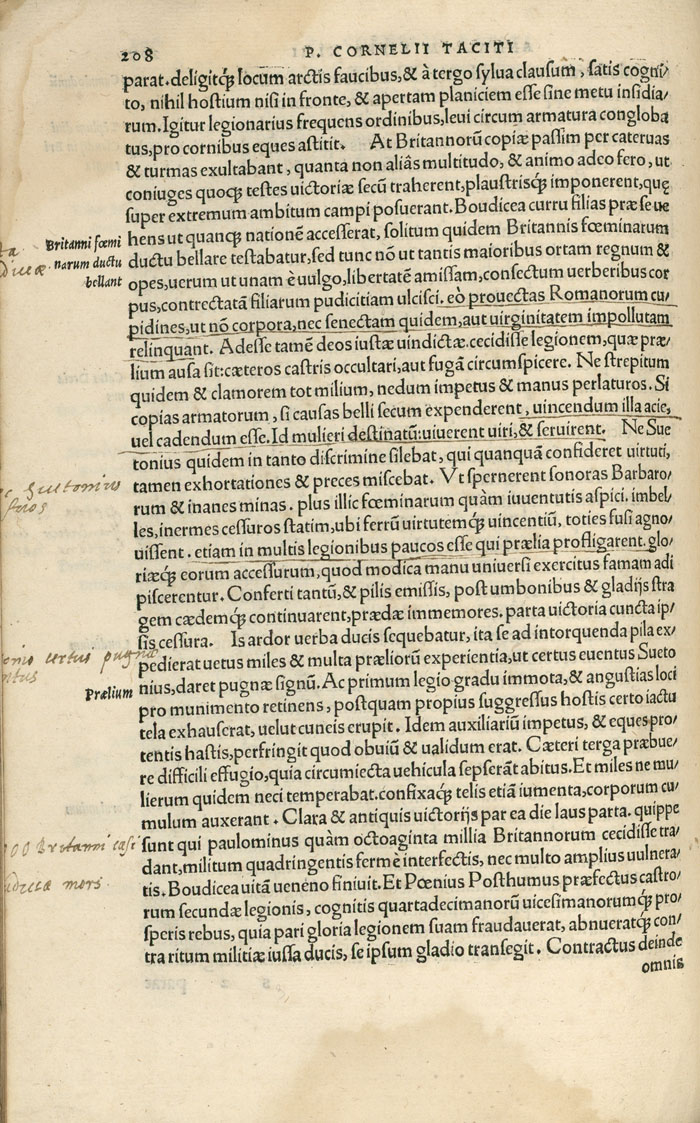 208
P. CORNELII TACITI
parat. deligitq́ʒ locum arctis faucibus, & à tergo sylua clausum, satis cogni/
to, nihil hostium nisi in fronte, & apertam planiciem esse sine metu insidia/
rum. Igitur legionarius frequens ordinibus, leui circum armatura congloba
tus, pro cornibus eques astitit. At Britannorũ copiæ passim per cateruas
& turmas exultabant, quanta non aliâs multitudo, & animo adeo fero, ut
coniuges quoqʒ testes uictoriæ secũ traherent, plaustrisq́ʒ imponerent, quę
super extremum ambitum campi posuerant. Boudicea curru filias præ se ue
Britanni fœmi
narum ductu
bellant
hens ut quanqʒ nationẽ accesserat, solitum quidem Britannis fœminarum
ductu bellare testabatur, sed tunc nõ ut tantis maioribus ortam regnum &
opes, uerum ut unam è uulgo, libertatẽ amissam, confectum uerberibus cor
pus, contrectatã filiarum pudicitiam ulcisci. eò prouectas Romanorum cu/
pidines, ut nõ corpora, nec senectam quidem, aut uirginitatem impollutam
relinquant. Adesse tamẽ deos iustæ uindictæ. cecidisse legionem, quæ præ/
lium ausa sit: cæteros castris occultari, aut fugã circumspicere. Ne strepitum
quidem & clamorem tot milium, nedum impetus & manus perlaturos. Si
copias armatorum, si causas belli secum expenderent, uincendum illa acie,
uel cadendum esse. Id mulieri destinatũ: uiuerent uiri, & seruirent. Ne Sue
tonius quidem in tanto discrimine silebat, qui quanquã confideret uirtuti,
Suetonius
suos
tamen exhortationes & preces miscebat. Vt spernerent sonoras Barbaro/
rum & inanes minas. plus illic fœminarum quàm iuuentutis aspici. imbel/
les, inermes cessuros statim, ubi ferrũ uirtutemq́ʒ uincentiũ, toties fusi agno/
uissent. etiam in multis legionibus paucos esse qui prælia profligarent. glo/
riæq́ʒ eorum accessurum, quod modica manu uniuersi exercitus famam adi
piscerentur. Conferti tantũ, & pilis emissis, post umbonibus & gladijs stra
gem cædemq́ʒ continuarent, prædæ immemores. parta uictoria cuncta ip/
sis cessura. Is ardor uerba ducis sequebatur, ita se ad intorquenda pila ex/
certus pugnæ
pedierat uetus miles & multa præliorũ experientia, ut certus euentus Sueto
Prælium
nius, daret pugnæ signũ. Ac primum legio gradu immota, & angustias loci
pro munimento retinens, postquam propius suggressus hostis certo iactu
tela exhauserat, uelut cuneis erupit. Idem auxiliariũ impetus, & eques pro/
tentis hastis, perfringit quod obuiũ & ualidum erat. Cæteri terga præbue/
re difficili effugio, quia circumiecta uehicula sepserãt abitus. Et miles ne mu/
lierum quidem neci temperabat. confixaq́ʒ telis etiã iumenta, corporum cu/
mulum auxerant. Clara & antiquis uictorijs par ea die laus parta. quippe
Britanni cæsi
sunt qui paulominus quàm octoaginta millia Britannorum cecidisse tra/
dant, militum quadringentis fermè interfectis, nec multo amplius uulnera/
mors
tis. Boudicea uitã ueneno finiuit. Et Pœnius Posthumus præfectus castro/
rum secundæ legionis, cognitis quartadecimanorũ uicesimanorumq́ʒ pro/
speris rebus, quia pari gloria legionem suam fraudauerat, abnueratq́ʒ con/
tra ritum militiæ iussa ducis, se ipsum gladio transegit. Contractus deinde
omnis